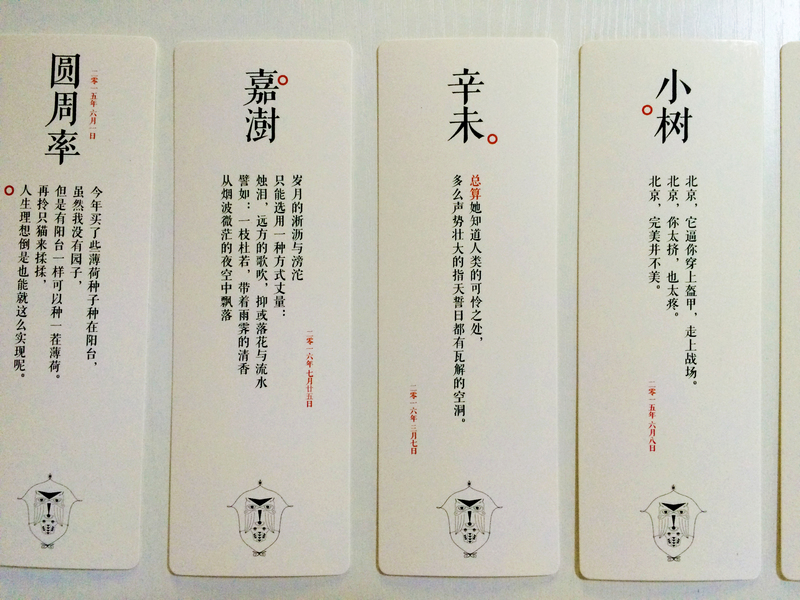 圆周率
二零一五年六月一日
今年买了些薄荷种子种在阳台，
虽然我没有园子，
但是有阳台一样可以种一茬薄荷。
再拎只猫来揉揉，
人生理想倒是也能就这么实现呢。
嘉澍
岁月的淅沥与滂沱
只能选用一种方式丈量：
烛泪，远方的歌吹，抑或落花与流水
譬如：一枝杜若，带着雨霁的清香
从烟波微茫的夜空中飘落
二零一六年七月廿五日
辛未
总算她知道人类的可怜之处，
多么声势壮大的指天誓日都有瓦解的空洞。
二零一六年三月七日
小树
北京，它逼你穿上盔甲，走上战场。
北京，你太挤，也太疼。
北京，完美并不美。
二零一五年六月八日